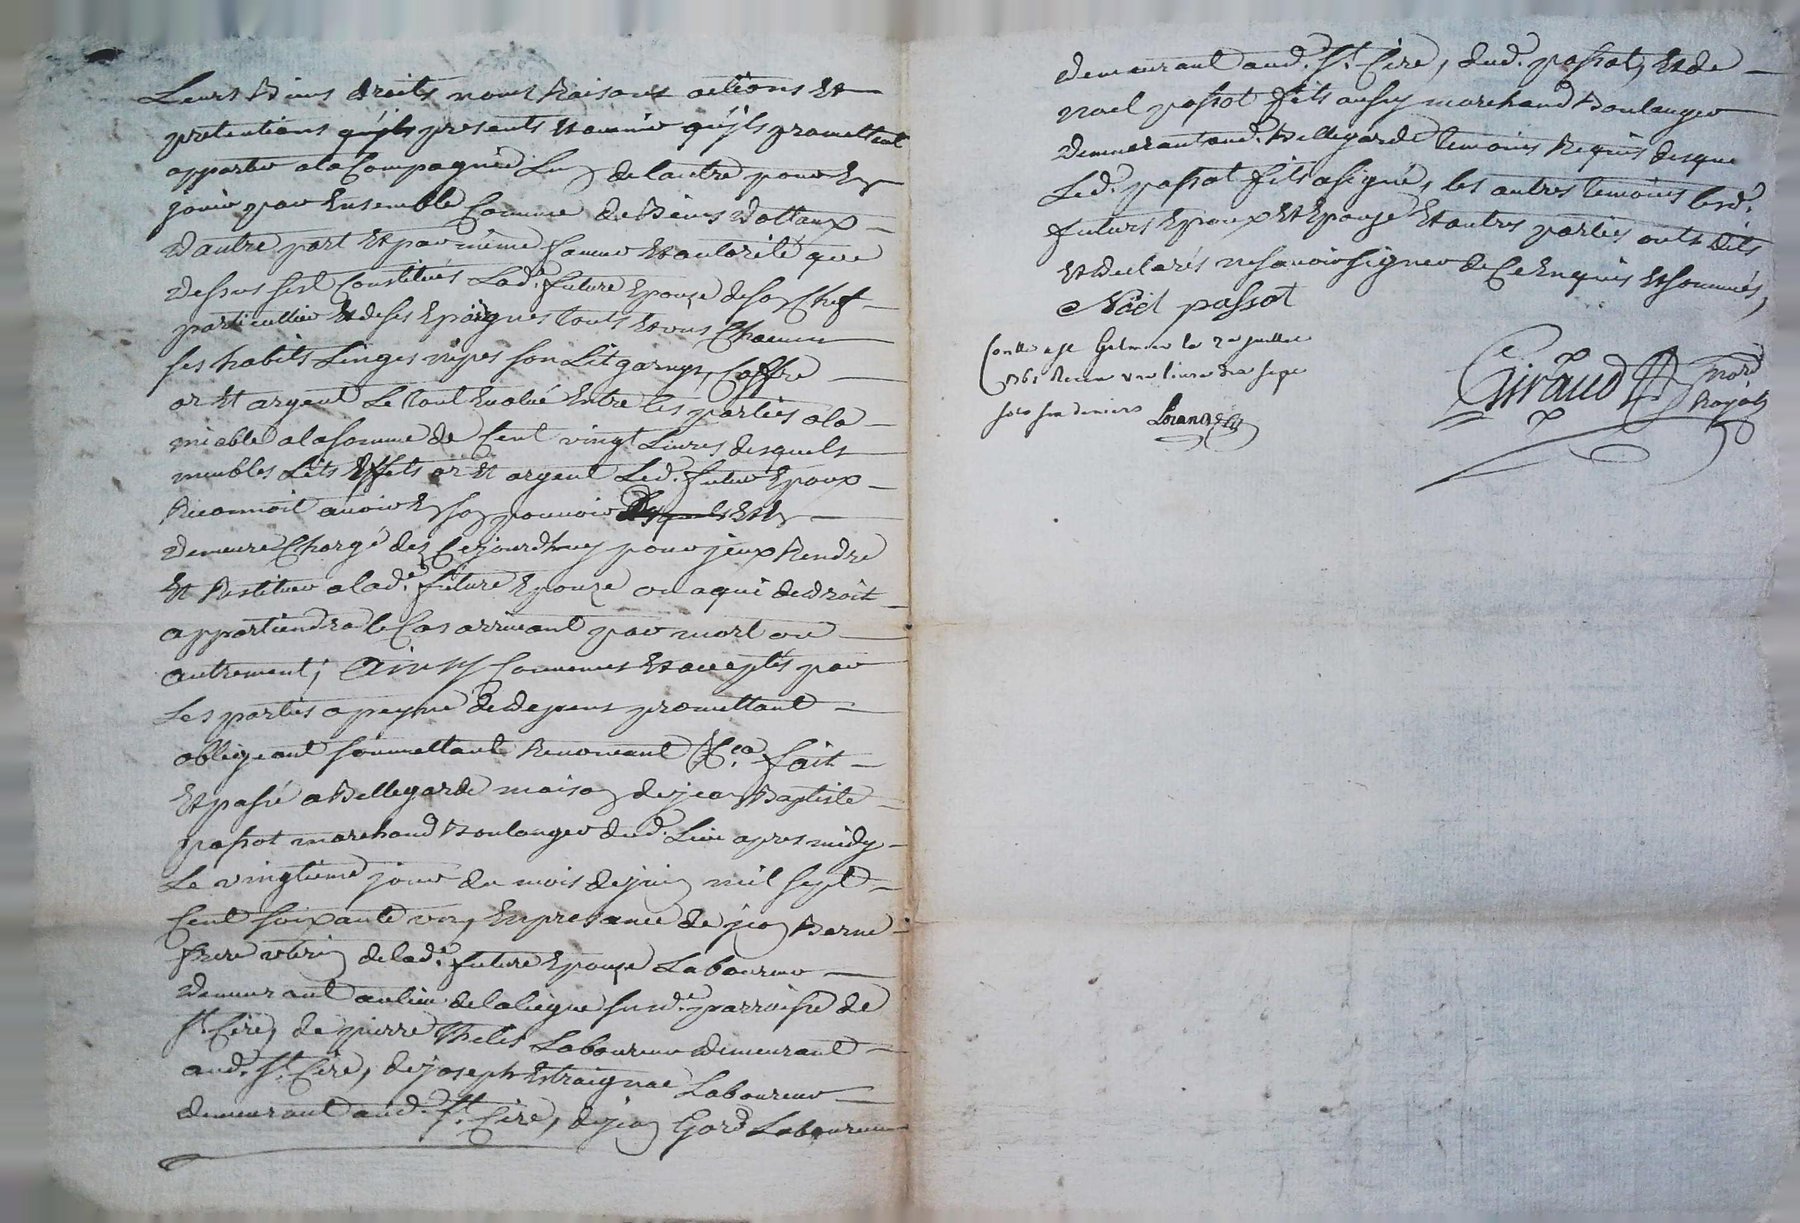 Leurs Biens droits noms Raisons actions Et
pretentions qu'jls presents Et avenir qu'jls promettent
apporter a la Compagnie Lun de lautre pour En
jouir par Ensemble Comme de Biens dottaux
dautre part Et par même faveur Et autorité que
dessus sest Constitués Lad.e future Epouse de son Chef
particullier Et de ses Epargnes touts Et uns Chacuns
ses habits Linges nipes son Lit garny, Coffre
or Et argent Le tout Evalué Entre les parties a la
miable a la somme de Cent vingt Livres desquels
meubles Lits Effets or Et argent Led. futur Epoux
Reconnoit avoir En son pouvoir Et En
demeure Chargé dez Cejourdhuy pour jceux Rendre
Et Restituer a lad.e future Epouze ou a qui de droit
appartiendra le Cas arrivant par mort ou
autrement; Ainsy Convenus Et acceptés par
Les parties a peyne de depens promettant
obligeant soumettant Renonceant &.ca fait
Et passé a Bellegarde maison de jean Baptiste
passot marchand Boulanger dud. Lieu apres midy
Le vingtieme jour du mois de juin mil sept
Cent soixante un, En presance de jean Barne
frere uterin de lad.e future Epouse Laboureur
demeurant au lieu de la susd.e parroisse de
St. Cire, de pierre Laboureur demeurant
aud. St. Cire, de joseph Estraignac Laboureur
demeurant aud. St. Cire, de jean Gord Laboureur
demeurant aud. St. Cire, dud. passot, Et de
noel passot fils aussy marchand Boulanger
demeurant aud. Bellegarde temoins Requis desque
Led. passot fils a signé, les autres temoins lesd.
futurs Epoux Et Epouse Et autres parties onts dits
Et declarés ne savoir signer de Ce Enquis Et sommés,
Noël passot
Conllé a St Gelmier le 2e juillet
1761 Receu une livre dix sept
sols six deniers
Giraud
Royal